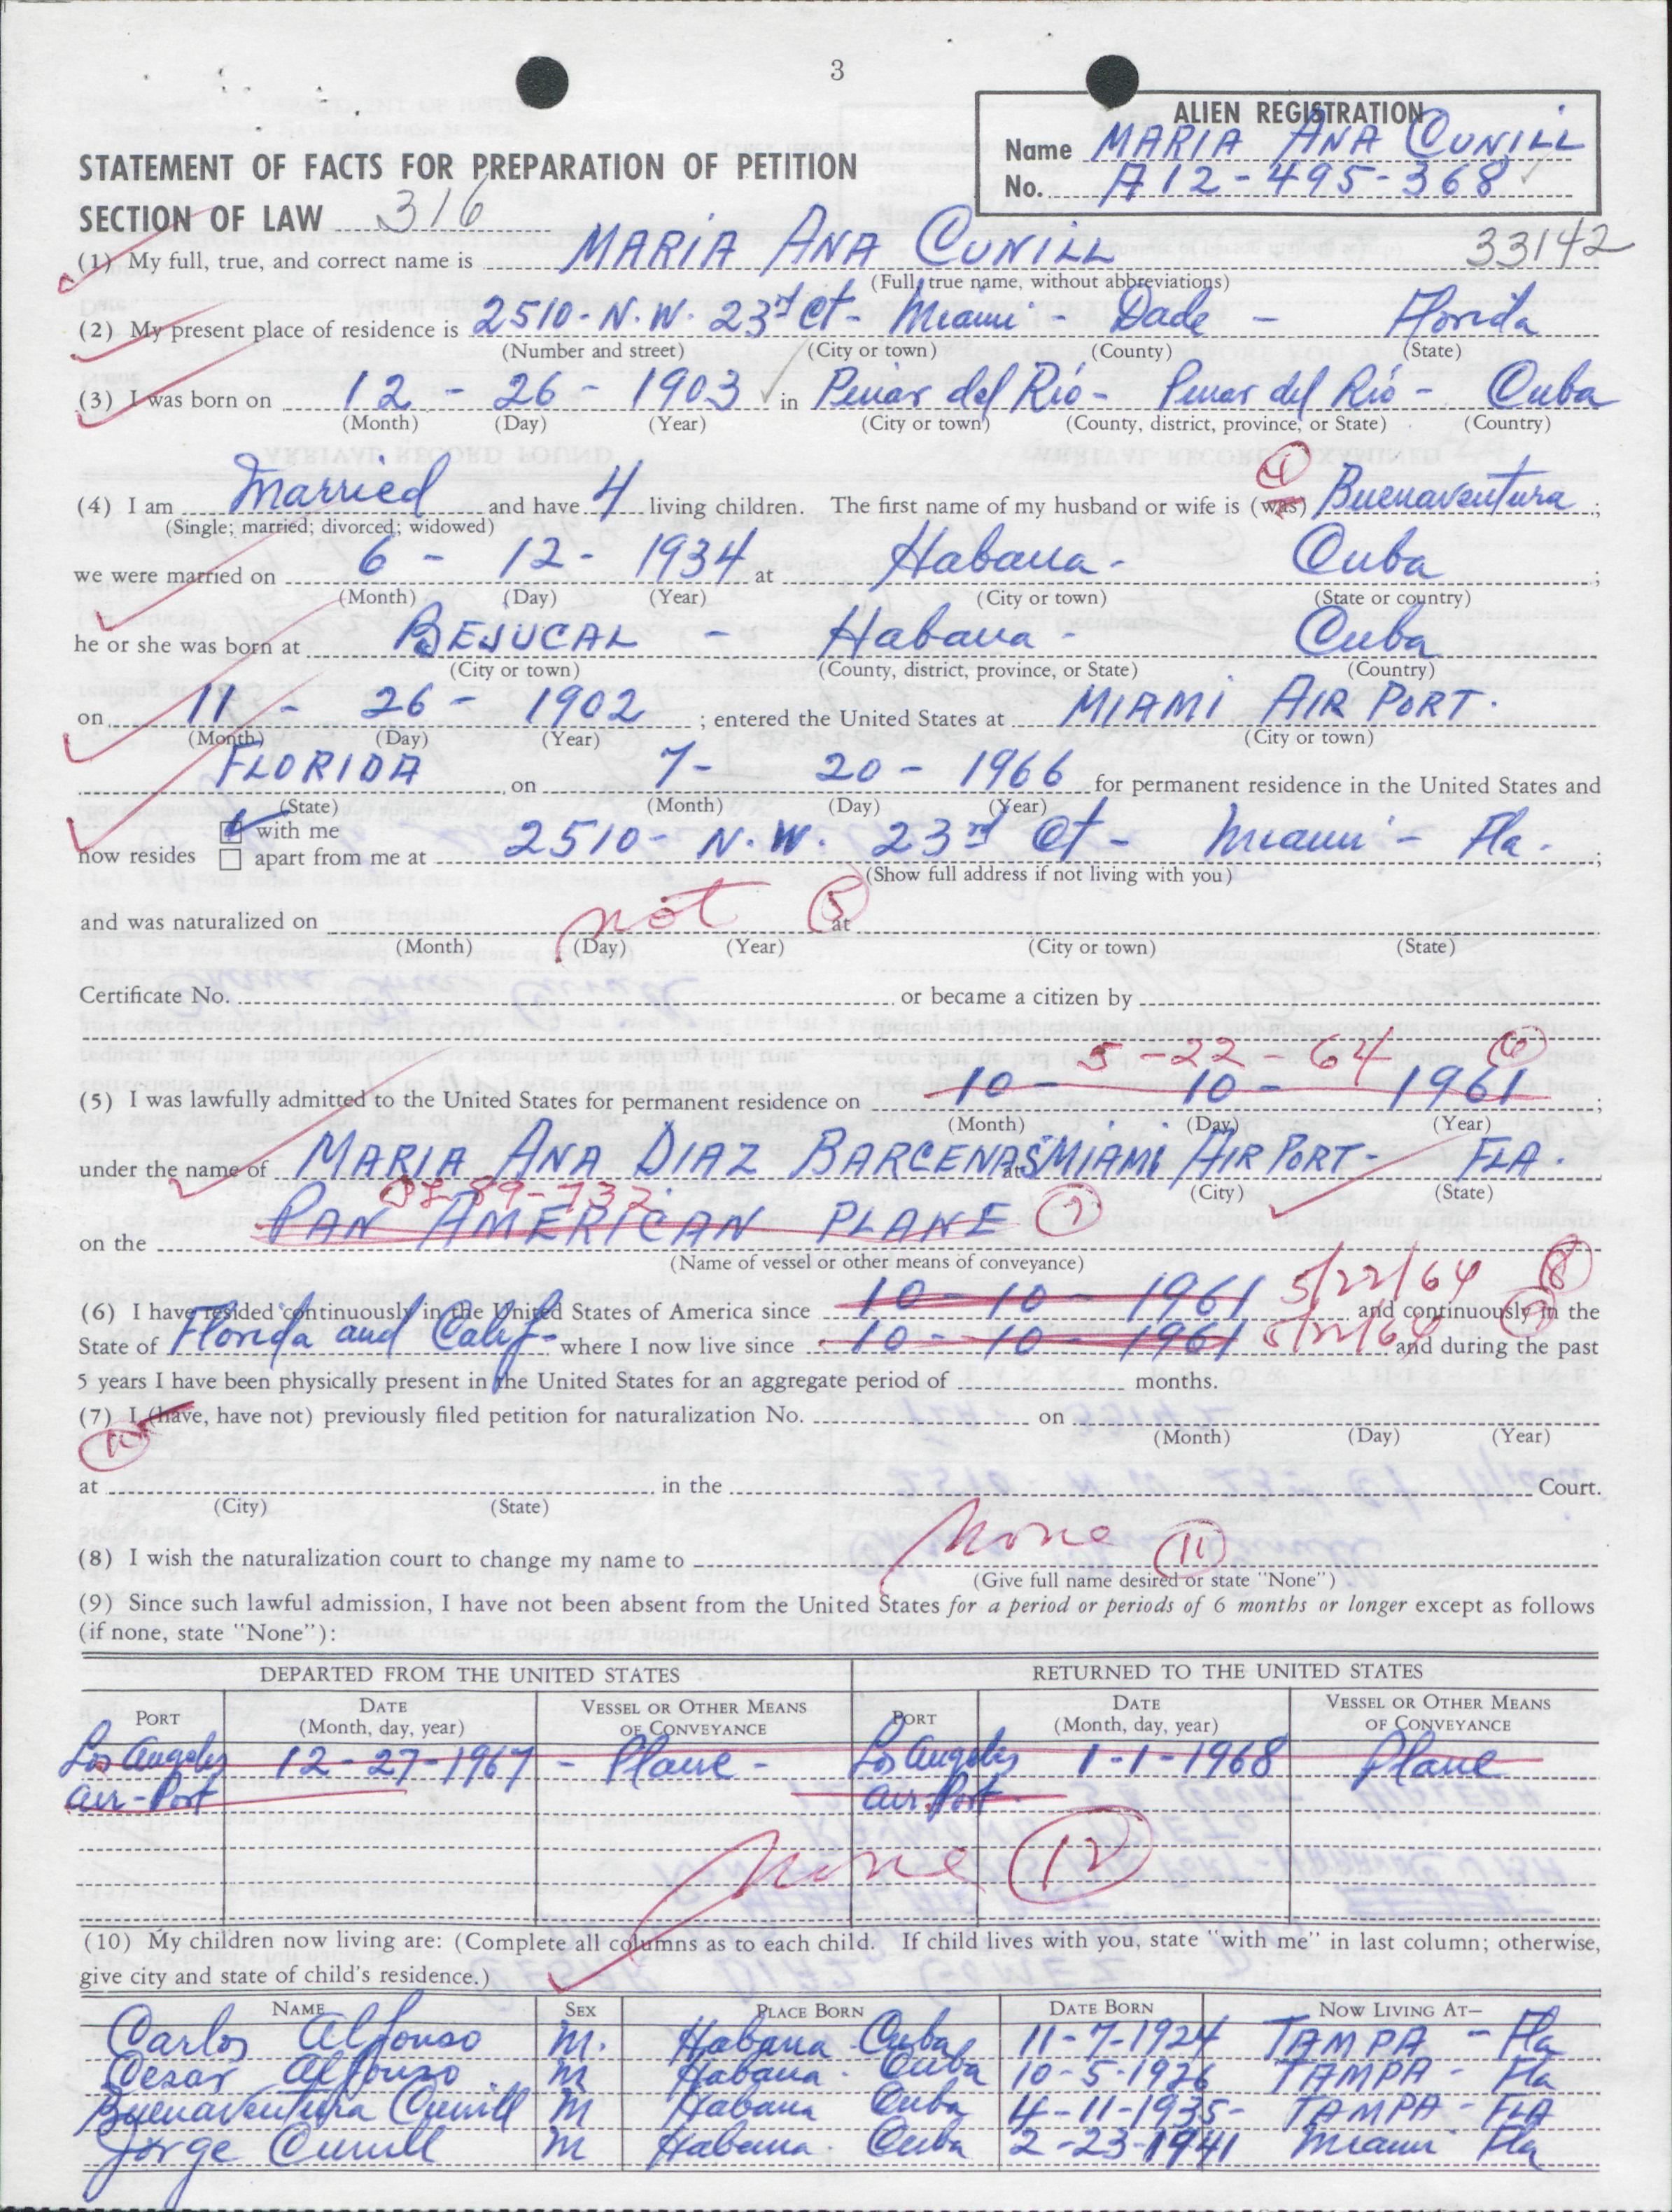 3
ALIEN REGISTRATION
Name MARIA ANA CUNILL
No. A12-495-368
STATEMENT OF FACTS FOR PREPARATION OF PETITION
SECTION OF LAW 316
33142
(1) My full, true, and correct name is MARIA ANA CUNILL
(Full, true name, without abbreviations)
(2) My present place of residence is 2510-N.W. 23rd Ct- Miami - Dade - Florida
(Number and street) (City or town) (County) (State)
(3) I was born on 12 - 26 - 1903 in Pinar del Río - Pinar del Río - Cuba
(Month) (Day) (Year) (City or town) (County, district, province, or State) (Country)
(4) I am Married and have 4 living children. The first name of my husband or wife is (was) 4 Buenaventura ;
(Single; married; divorced; widowed)
we were married on 6 - 12 - 1934 at Habana - Cuba ;
(Month) (Day) (Year) (City or town) (State or country)
he or she was born at BEJUCAL - Habana - Cuba
(City or town) (County, district, province, or State) (Country)
on 11 - 26 - 1902 ; entered the United States at MIAMI AIR PORT.
(Month) (Day) (Year) (City or town)
FLORIDA on 7- 20 - 1966 for permanent residence in the United States and
(State) (Month) (Day) (Year)
with me
now resides apart from me at 2510- N.W. 23rd Ct - Miami - Fla. ;
(Show full address if not living with you)
and was naturalized on not 5 at
(Month) (Day) (Year) (City or town) (State)
Certificate No. or became a citizen by
5-22-64 6
(5) I was lawfully admitted to the United States for permanent residence on 10 - 10 - 1961 ;
(Month) (Day) (Year)
under the name of MARIA ANA DIAZ BARCENAS at MIAMI AIR PORT - FLA.
(City) (State)
on the PAN AMERICAN PLANE 7
(Name of vessel or other means of conveyance)
(6) I have resided continuously in the United States of America since 10-10-1961 5/22/64 8 and continuously in the
State of Florida and Calif- where I now live since 10-10-1961 5/22/64 and during the past
5 years I have been physically present in the United States for an aggregate period of months.
(7) I (have, have not) previously filed petition for naturalization No. on
10 (Month) (Day) (Year)
at in the Court.
(City) (State)
(8) I wish the naturalization court to change my name to None 11
(Give full name desired or state "None")
(9) Since such lawful admission, I have not been absent from the United States for a period or periods of 6 months or longer except as follows
(if none, state "None"):
DEPARTED FROM THE UNITED STATES RETURNED TO THE UNITED STATES
PORT DATE (Month, day, year) VESSEL OR OTHER MEANS OF CONVEYANCE PORT DATE (Month, day, year) VESSEL OR OTHER MEANS OF CONVEYANCE
Los Angeles 12-27-1967 - Plane - Los Angeles 1-1-1968 Plane
Air-Port Air-Port
None 12
(10) My children now living are: (Complete all columns as to each child. If child lives with you, state "with me" in last column; otherwise,
give city and state of child's residence.)
NAME SEX PLACE BORN DATE BORN NOW LIVING AT—
Carlos Alfonso M. Habana Cuba 11-7-1924 TAMPA - Fla
Cesar Alfonso M Habana. Cuba 10-5-1926 TAMPA - Fla
Buenaventura Cunill M Habana Cuba 4-11-1935- TAMPA - FLA
Jorge Cunill M Habana. Cuba 2-23-1941 Miami Fla